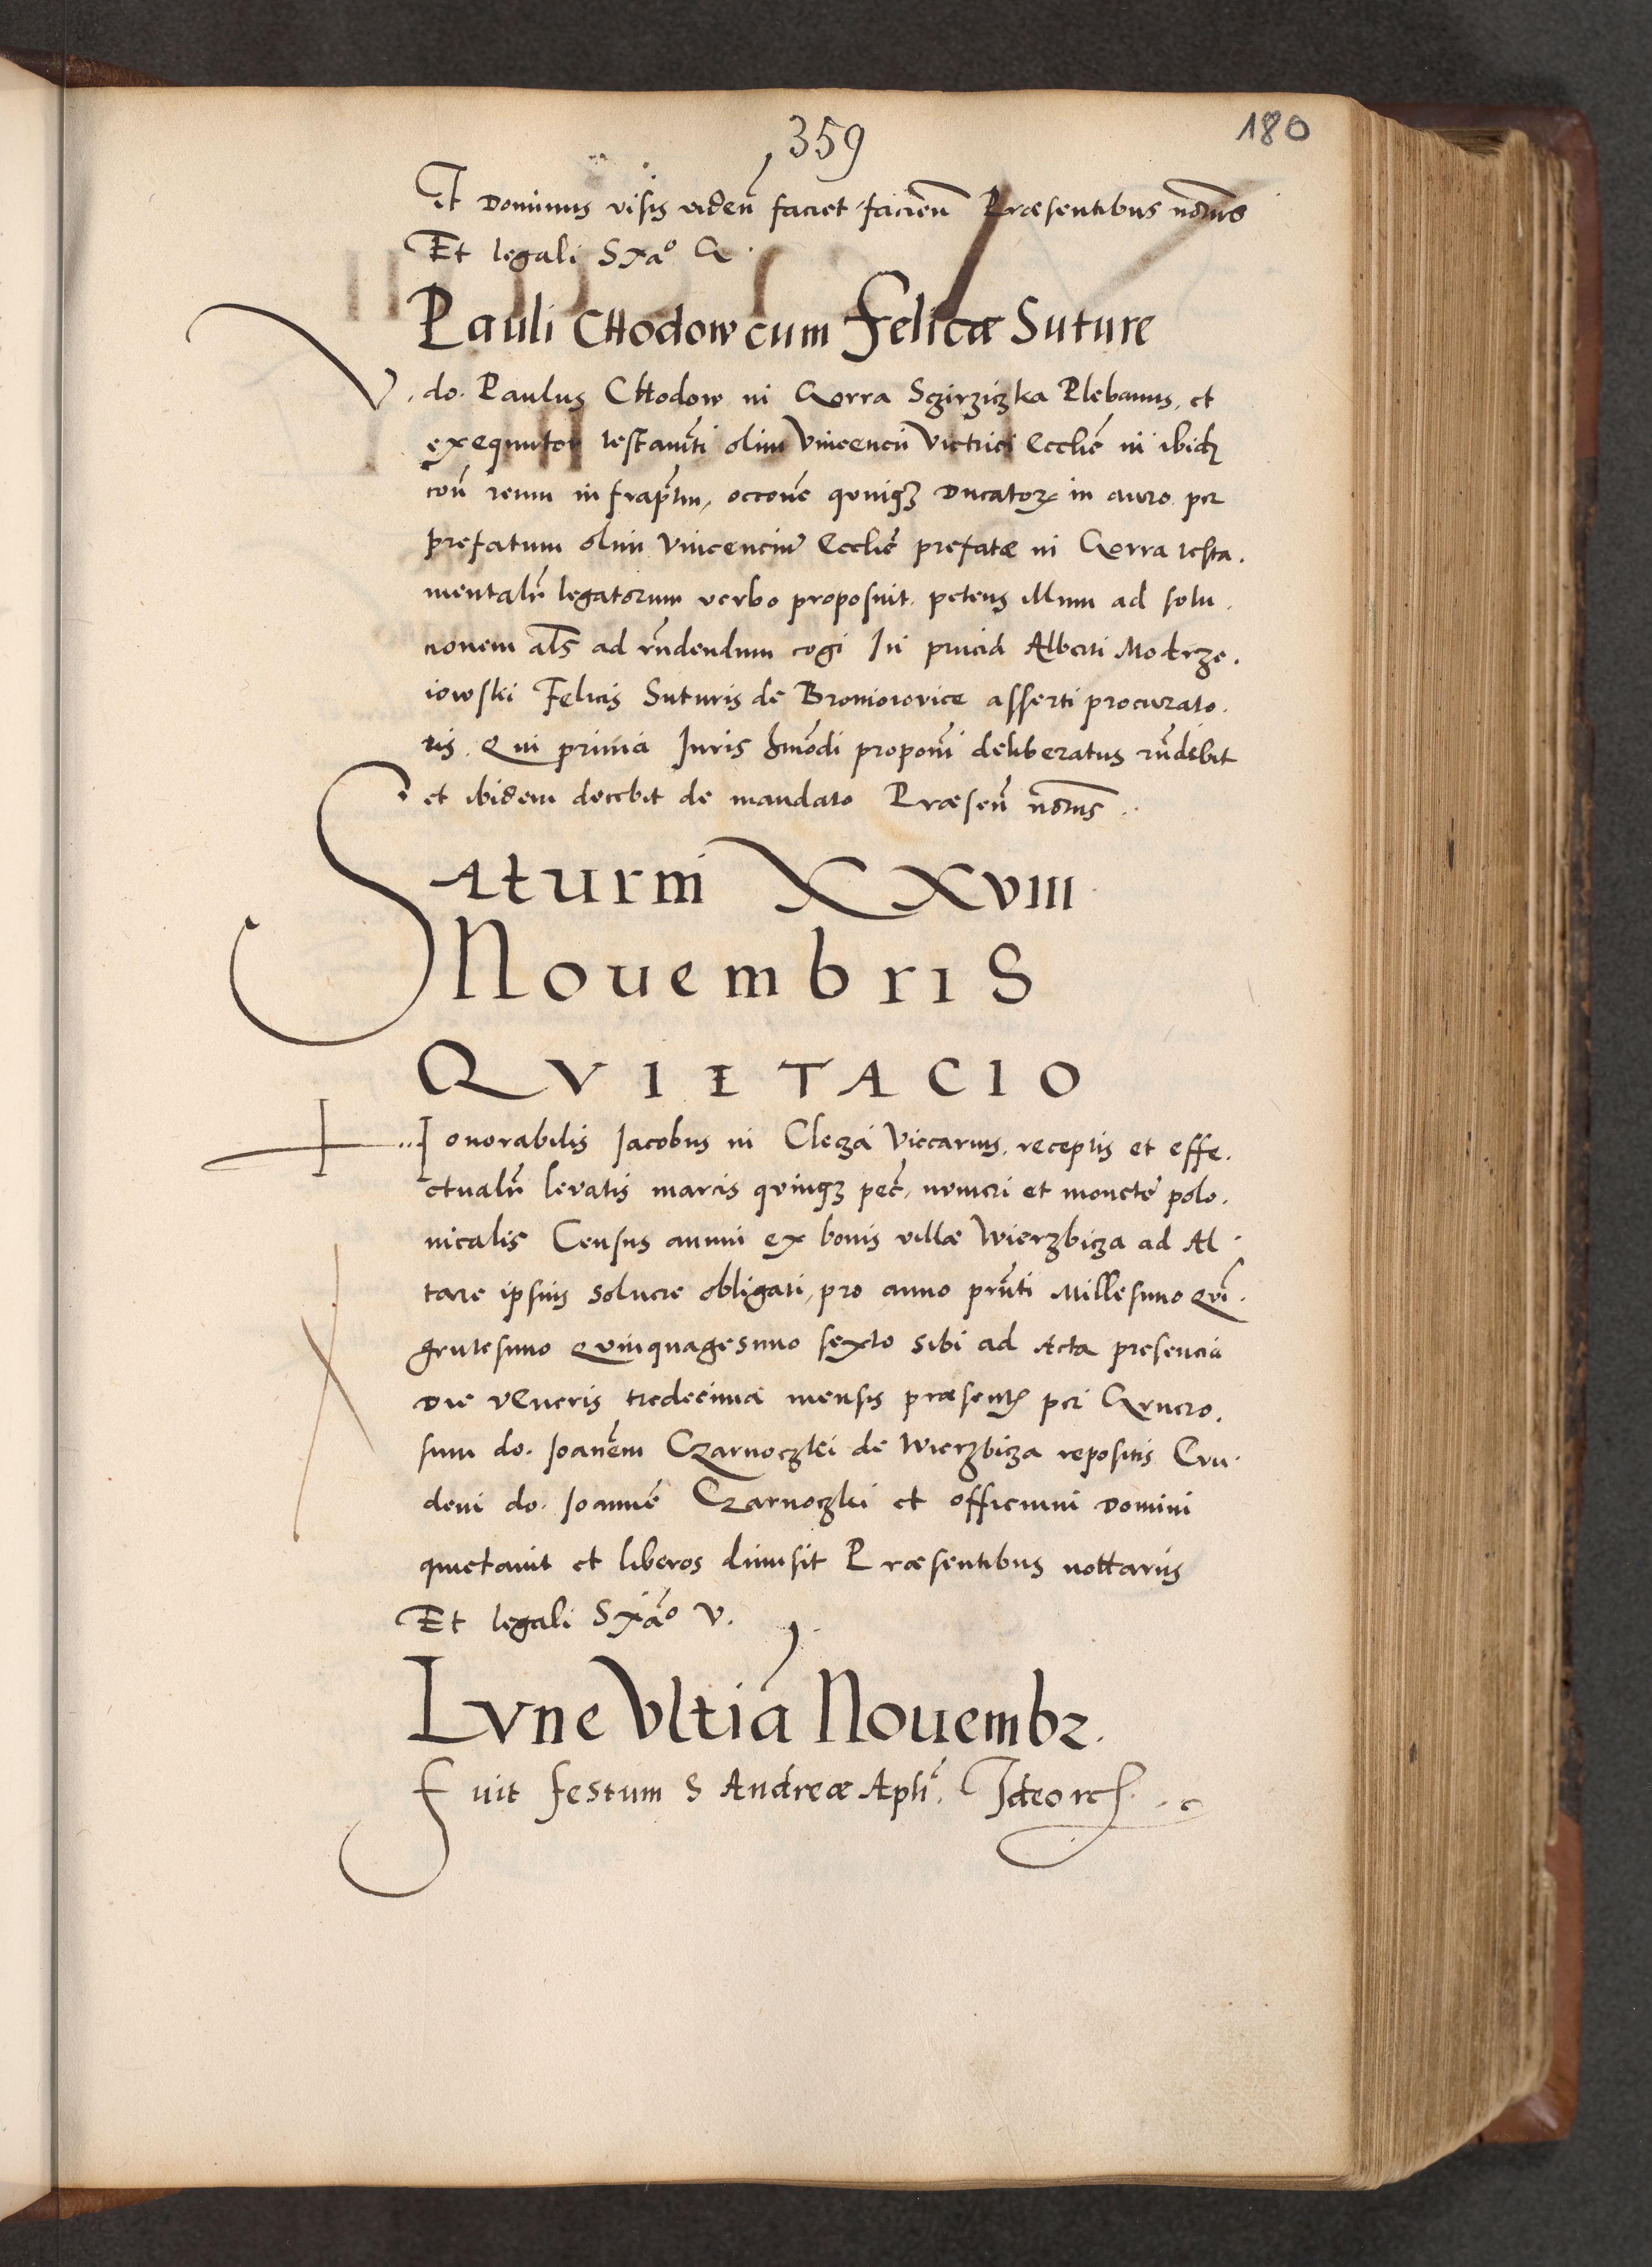 359
180
Et Dominus visis viden̄ faciet facien̄ Præsentibus notario
Et legali Sxão Q.
Pauli CHodow cum Felicæ Suture
V. do. Paulus CHodow in Gorra Sgirziczka Plebanus, et
exequutor testamn̄ti olim Vincencii Victrici Eccliē in ibidȝ
con̄ reum infrap̄tm, occone quinqȝ Ducatorꝝ in auro per
prefatum olim Vincenciu Eccliē prefatæ in Gorra testa.
mentalr̄ legatorum verbo proposuit. petens illum ad solu.
cionem al̄s ad rn̄dendum cogi In pn̄cia Alberti Modrze.
iowski Felicis Suturis de Broniowice asserti procurato.
ris. Qui primā Juris hmōdi proponi deliberatus rn̄debit
et ibidem docebit de mandato Præsen̄ notarius.
Saturni XXVIII
NouembriS
QVIETACIO
Honorabilis Jacobus in Clecza Viccarius, receptis et effe.
ctualr̄ levatis marcis quinqȝ pec̄, numeri et monete polo.
nicalis Census annui ex bonis villæ Wierzbicza ad Al
tare ipsius soluere obligati, pro anno prn̄ti Millesimo Qui.
gentesimo Quinquagesimo sexto sibi ad Acta presencia
Die Veneris tredecima mensis præsentꝭ per Genero.
sum do. Joan̄em Czarnoczki de Wierzbicza repositis Eun.
dem do. Joannē Czarnoczki et officium Domini
quietauit et liberos dimisit Præsentibus nottariis
Et legali Sxão V.
Lvne Vltiā Nouembr.
Fuit festum S Andreæ Apli. Ideo rel.